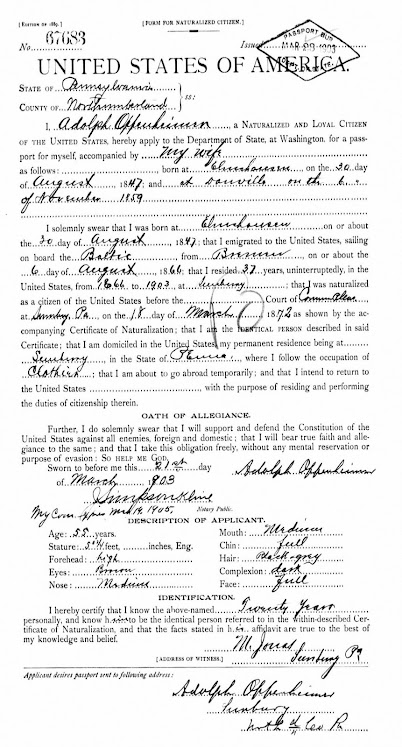 [EDITION OF 1889.] [FORM FOR NATURALIZED CITIZEN.]
No. 67683 Issued
PASSPORT BUR
MAR 23 1903
UNITED STATES OF AMERICA.
STATE OF Pennsylvania
COUNTY OF Northumberland ss:
I, Adolph Oppenheimer, a NATURALIZED AND LOYAL CITIZEN
OF THE UNITED STATES, hereby apply to the Department of State, at Washington, for a pass-
port for myself, accompanied by My wife
as follows: born at Elmshausen on the 30 day
of August 1847; and at Danville on the 6
of November 1859
I solemnly swear that I was born at Elmshausen on or about
the 30 day of August, 1847; that I emigrated to the United States, sailing
on board the Baltic from Bremen on or about the
6 day of August 1866; that I resided 37 years, uninterruptedly, in the
United States, from 1866 to 1903 at Sunbury; that I was naturalized
as a citizen of the United States before the Court of Common Pleas
at Sunbury, Pa on the 18 day of March, 1872 as shown by the ac-
companying Certificate of Naturalization; that I am the IDENTICAL PERSON described in said
Certificate; that I am domiciled in the United States, my permanent residence being at
Sunbury, in the State of Penna, where I follow the occupation of
Clothier; that I am about to go abroad temporarily; and that I intend to return to
the United States with the purpose of residing and performing
the duties of citizenship therein.
OATH OF ALLEGIANCE.
Further, I do solemnly swear that I will support and defend the Constitution of the
United States against all enemies, foreign and domestic; that I will bear true faith and alle-
giance to the same; and that I take this obligation freely, without any mental reservation or
purpose of evasion: SO HELP ME GOD.
Sworn to before me this 21st day
of March 1903 Adolph Oppenheimer
Notary Public.
My Com 1905,
DESCRIPTION OF APPLICANT.
Age: 55 years. Mouth: Medium
Stature: 5.4 feet, inches, Eng. Chin: full
Forehead: high Hair: Black-gray
Eyes: Brown Complexion: dark
Nose: Medium Face: full
IDENTIFICATION.
I hereby certify that I know the above-named Twenty Years
personally, and know him to be the identical person referred to in the within-described Cer-
tificate of Naturalization, and that the facts stated in his affidavit are true to the best of
my knowledge and belief.
M. Jonas
[ADDRESS OF WITNESS.] Sunbury Pa
Applicant desires passport sent to following address:
Adolph Oppenheimer
Sunbury